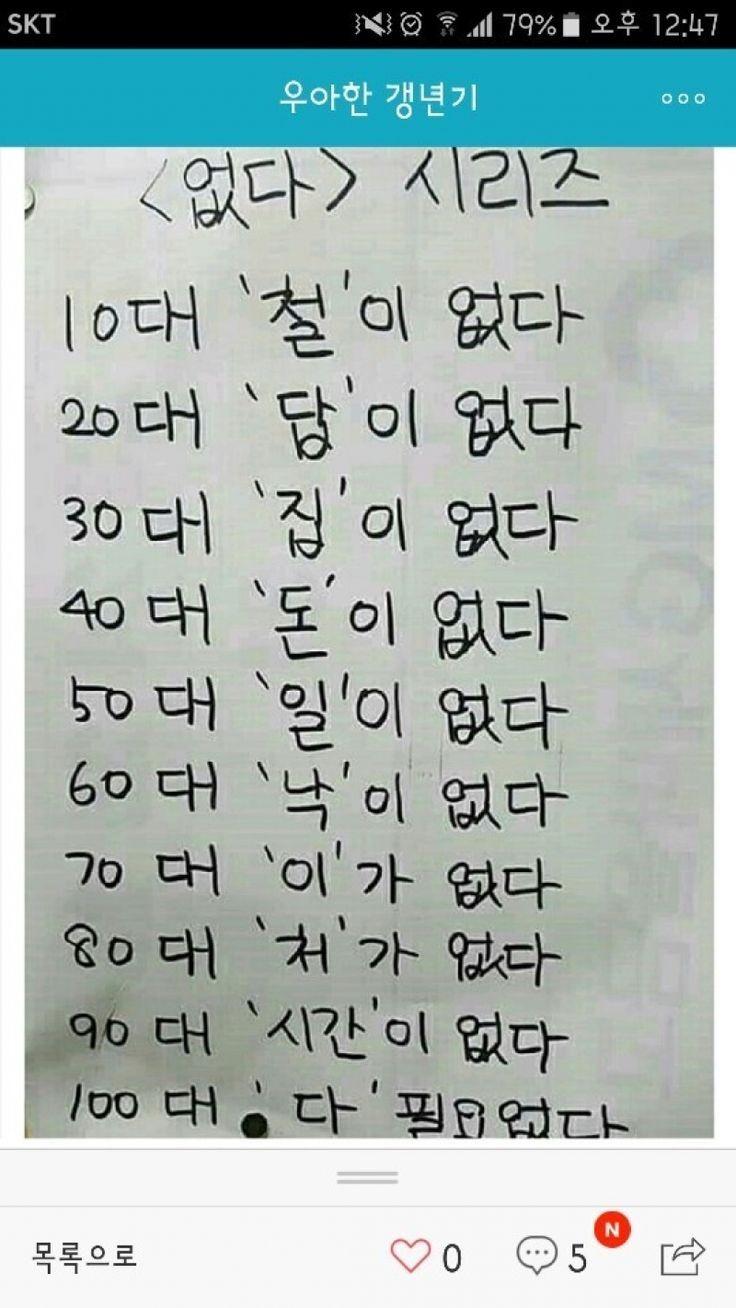 SKT 79% 오후 12:47
우아한 갱년기
<없다> 시리즈
10대 '철'이 없다
20대 '답'이 없다
30대 '집'이 없다
40대 '돈'이 없다
50대 '일'이 없다
60대 '낙'이 없다
70대 '이'가 없다
80대 '처'가 없다
90대 '시간'이 없다
100대 '다' 필요없다
목록으로 0 5 N